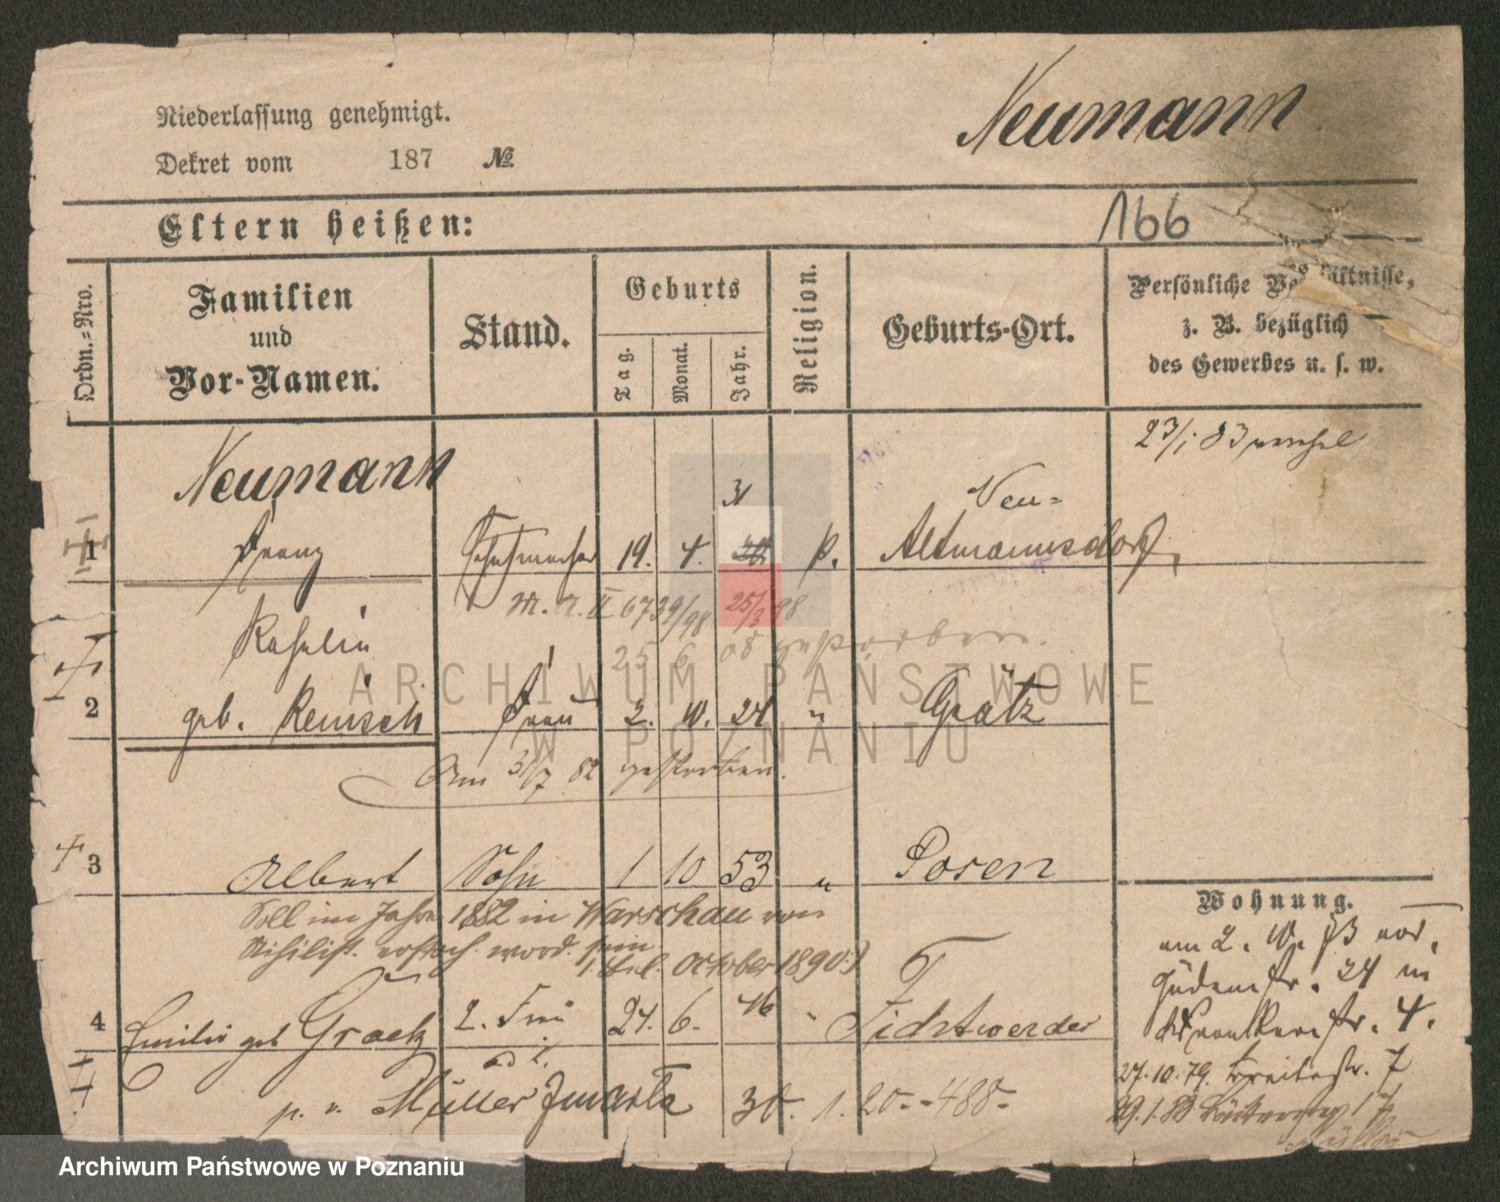 Niederlassung genehmigt.
Dekret vom 187 №.
Neumann
Eltern heißen:
166
Ordn.-Nro.
Familien
und
Vor-Namen.
Stand.
Geburts
Tag.
Monat.
Jahr.
Religion.
Geburts-Ort.
Persönliche Verhältnisse,
z. B. bezüglich
des Gewerbes u. s. w.
23/1 83
Neumann
31
Neu-
1 Franz Schuhmacher 19. 4. p. Altmannsdorf
M. R. II 6739/98 25/3 98
25 6 08 gestorben.
2 geb. Reinsch Frau 2. 10. 24 " Grätz
Am 31/7 82 gestorben.
3 Albert Sohn 1 10 53 " Posen
Soll im Jahre 1882 in Warschau von
Nihilist. word. sein
October 1890.)
4 Emilie geb Graetz 2. Frau 24. 6. 46 " Fichtwerder
ad 1.
p. v. Müller 30. 1. 20. - 488 -
Wohnung.
am 2. 10. 73 von
24 in
str. 4.
27.10.79. Breitestr. 7
29.1.80 17
Müller
ARCHIWUM PAŃSTWOWE
W POZNANIU
Archiwum Państwowe w Poznaniu